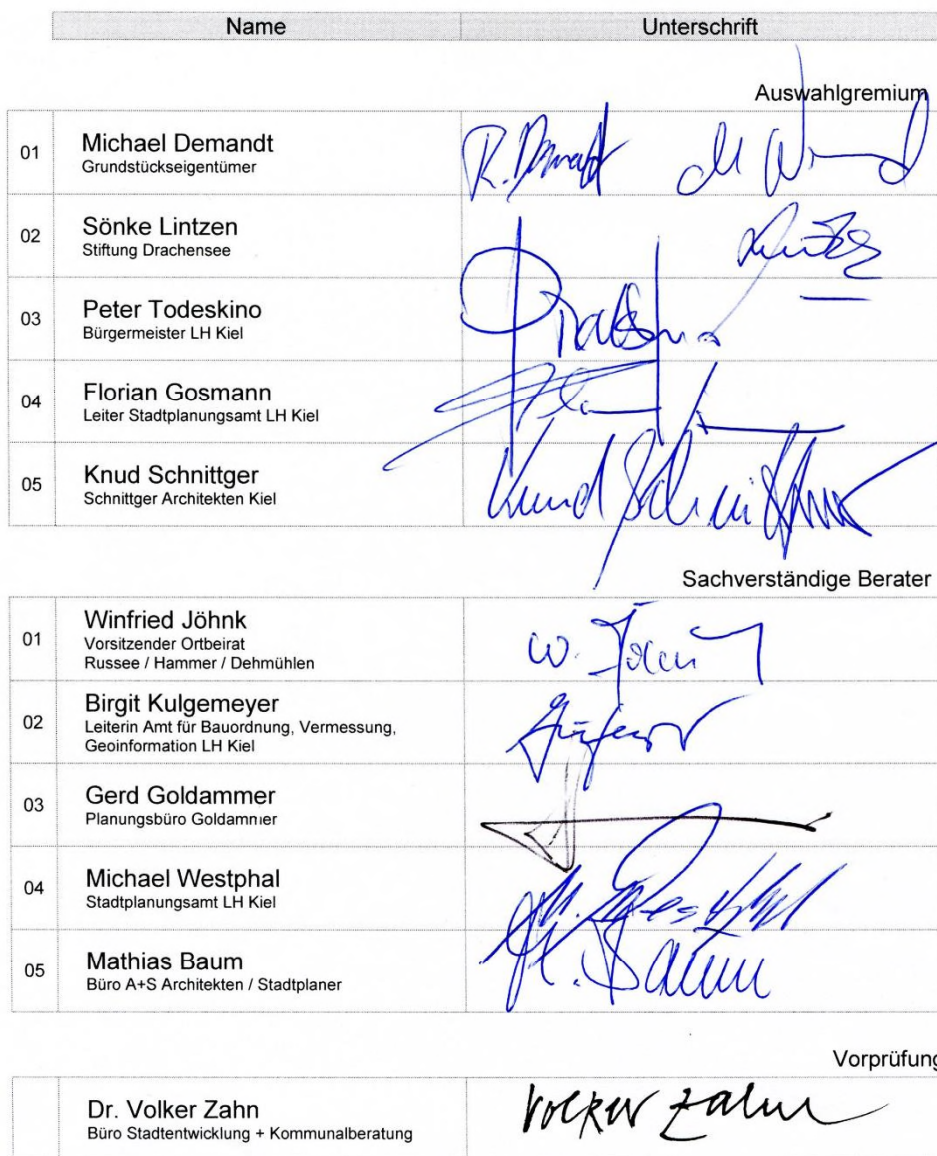 Name Unterschrift
Auswahlgremium
01 Michael Demandt
Grundstückseigentümer
R. Demandt
02 Sönke Lintzen
Stiftung Drachensee
03 Peter Todeskino
Bürgermeister LH Kiel
04 Florian Gosmann
Leiter Stadtplanungsamt LH Kiel
05 Knud Schnittger
Schnittger Architekten Kiel
Knud Schnittger
Sachverständige Berater
01 Winfried Jöhnk
Vorsitzender Ortbeirat
Russee / Hammer / Dehmühlen
W. Jöhnk
02 Birgit Kulgemeyer
Leiterin Amt für Bauordnung, Vermessung,
Geoinformation LH Kiel
03 Gerd Goldammer
Planungsbüro Goldammer
04 Michael Westphal
Stadtplanungsamt LH Kiel
M. Westphal
05 Mathias Baum
Büro A+S Architekten / Stadtplaner
M. Baum
Vorprüfung
Dr. Volker Zahn
Büro Stadtentwicklung + Kommunalberatung
Volker Zahn